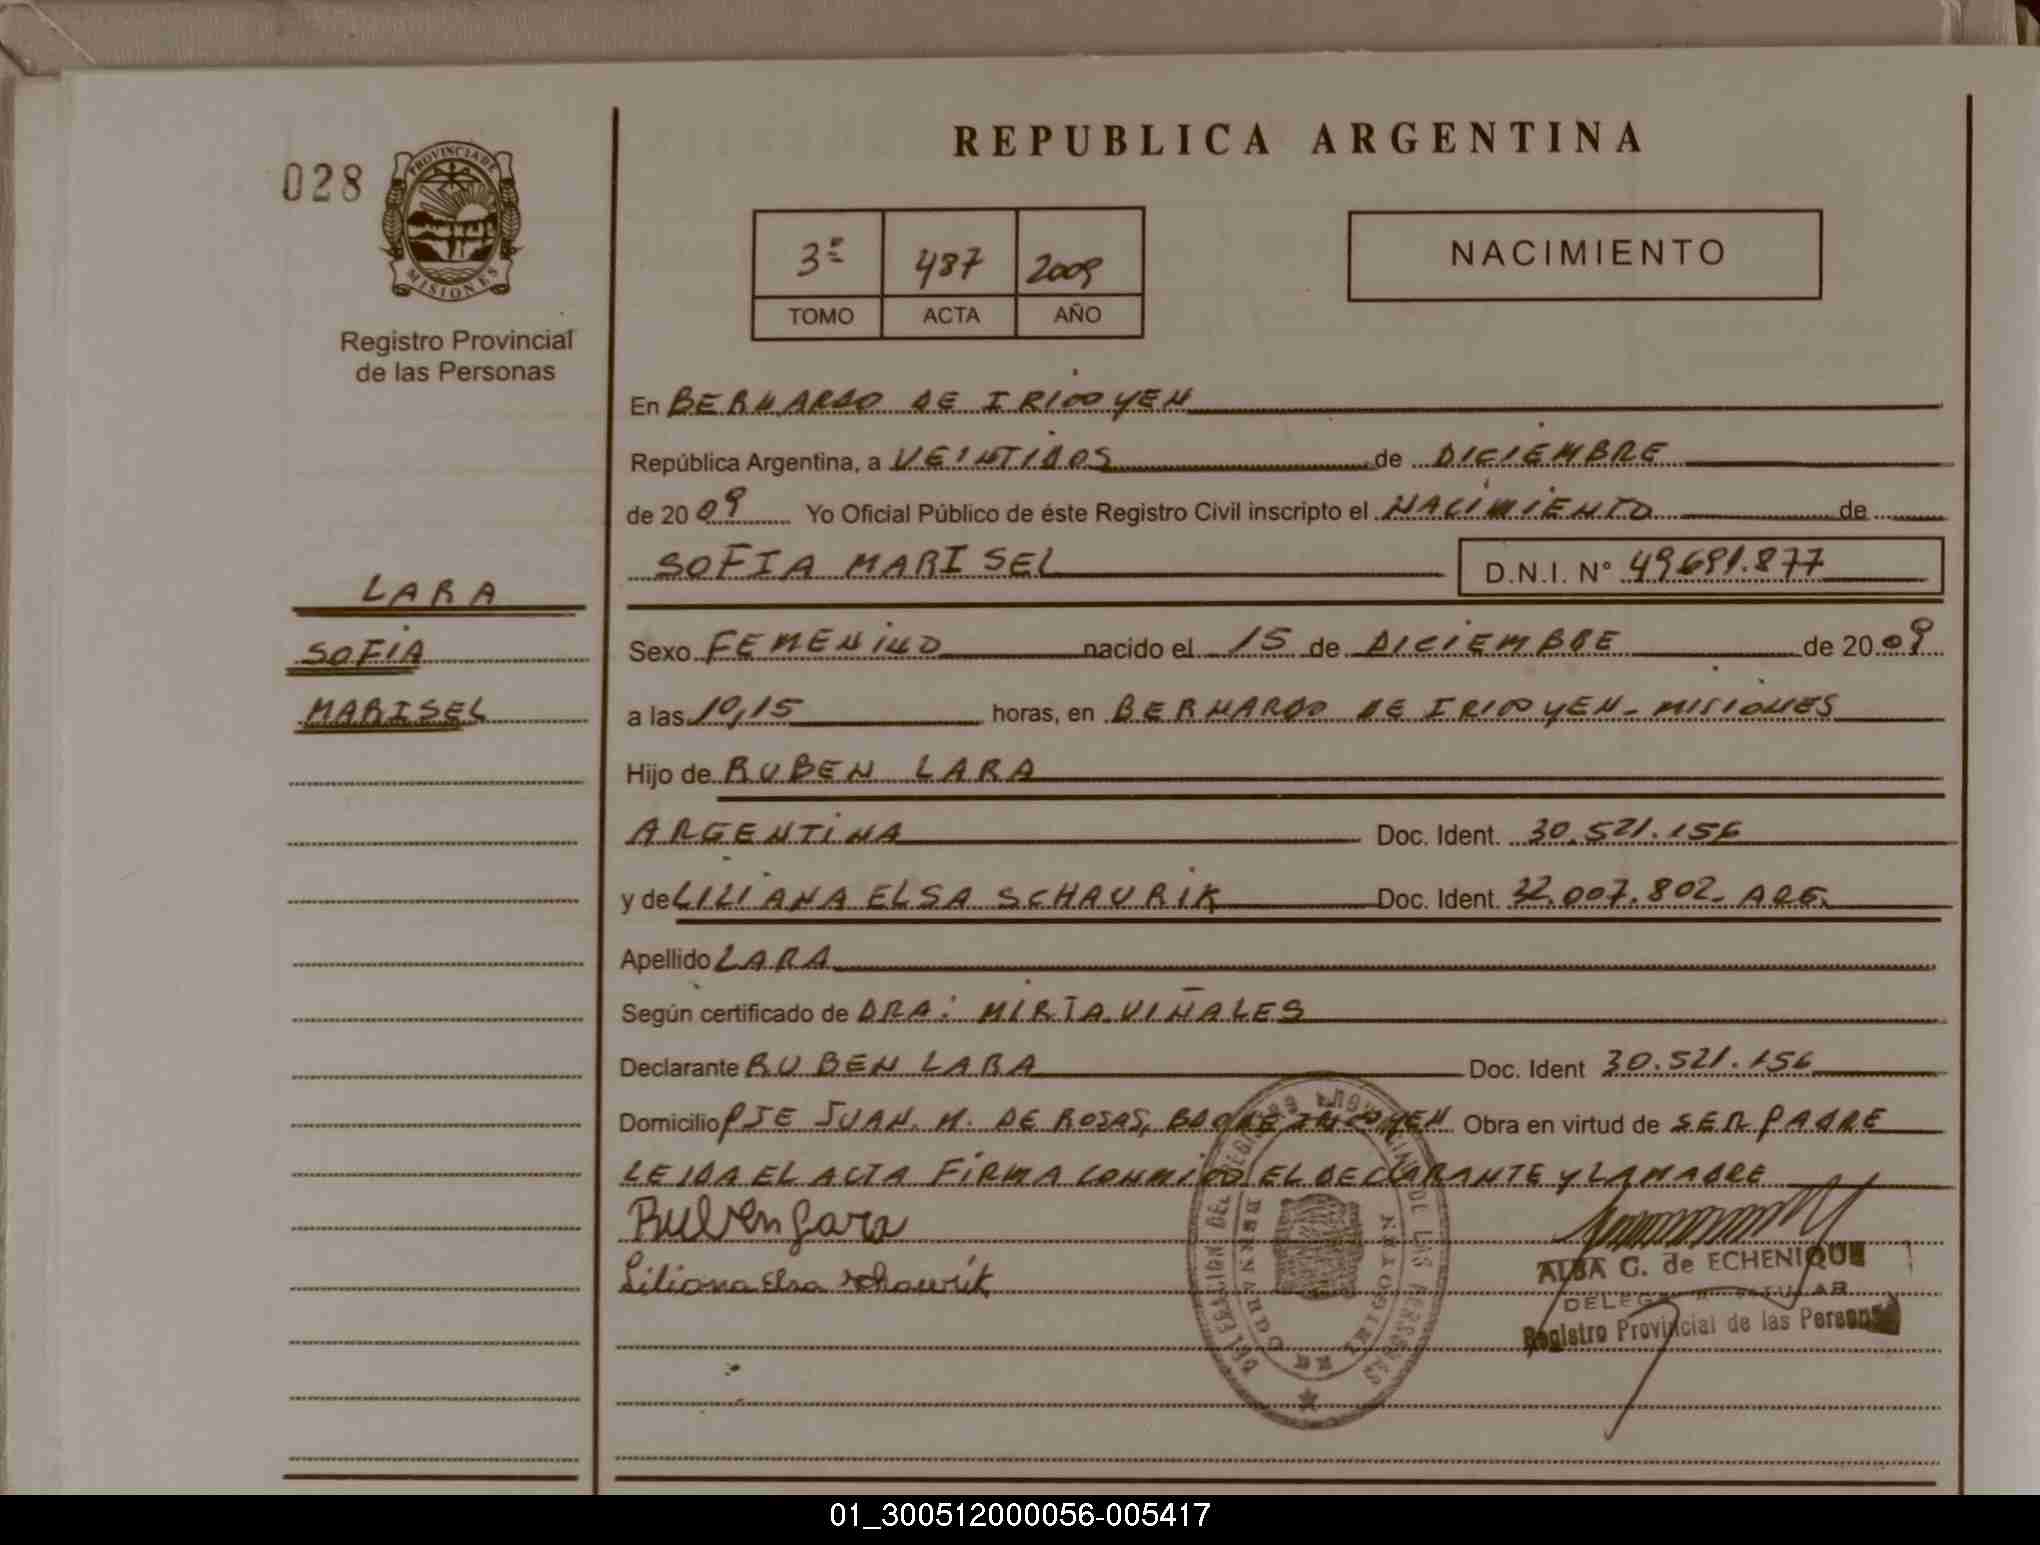 REPUBLICA ARGENTINA
028
PROVINCIA DE
MISIONES
Registro Provincial
de las Personas
3º 487 2009
TOMO ACTA AÑO
NACIMIENTO
En BERNARDO DE IRIGOYEN
República Argentina, a VEINTIDOS de DICIEMBRE
de 2009 Yo Oficial Público de éste Registro Civil inscripto el NACIMIENTO de
SOFIA MARISEL D.N.I. Nº 49691.877
LARA
SOFIA
MARISEL
Sexo FEMENINO nacido el 15 de DICIEMBRE de 2009
a las 10,15 horas, en BERNARDO DE IRIGOYEN - MISIONES
Hijo de RUBEN LARA
ARGENTINA Doc. Ident. 30.521.156
y de LILIANA ELSA SCHAURIK Doc. Ident. 32.007.802- ARG.
Apellido LARA
Según certificado de DRA: MIRTA VIÑALES
Declarante RUBEN LARA Doc. Ident 30.521.156
Domicilio PJE JUAN. M. DE ROSAS, BDO DE IRIGOYEN Obra en virtud de SER PADRE
LEIDA EL ACTA FIRMA CONMIGO EL DECLARANTE Y LA MADRE
Ruben Lara
Liliana Elsa Schaurik
ALBA G. de ECHENIQUE
Registro Provincial de las Personas
DELEGACION DEL REGISTRO PROVINCIAL DE LAS PERSONAS
BERNARDO DE IRIGOYEN
01_300512000056-005417